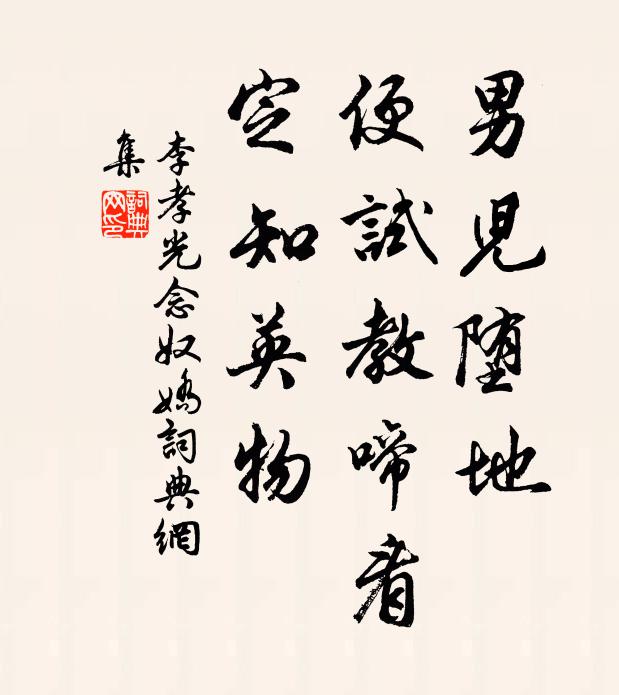 男兒堕地
便試教啼看
定知英物
李孝光念奴嬌詞典網
集
詞典網印